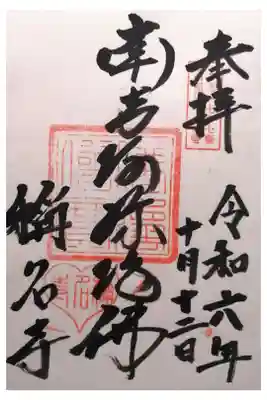 奉拝
令和六年
十月十二日
南無阿弥陀佛
稱名寺